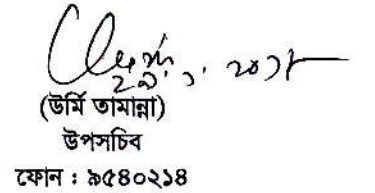 (উর্মি তামান্না)
উপসচিব
ফোন : ৯৫৪০২১৪